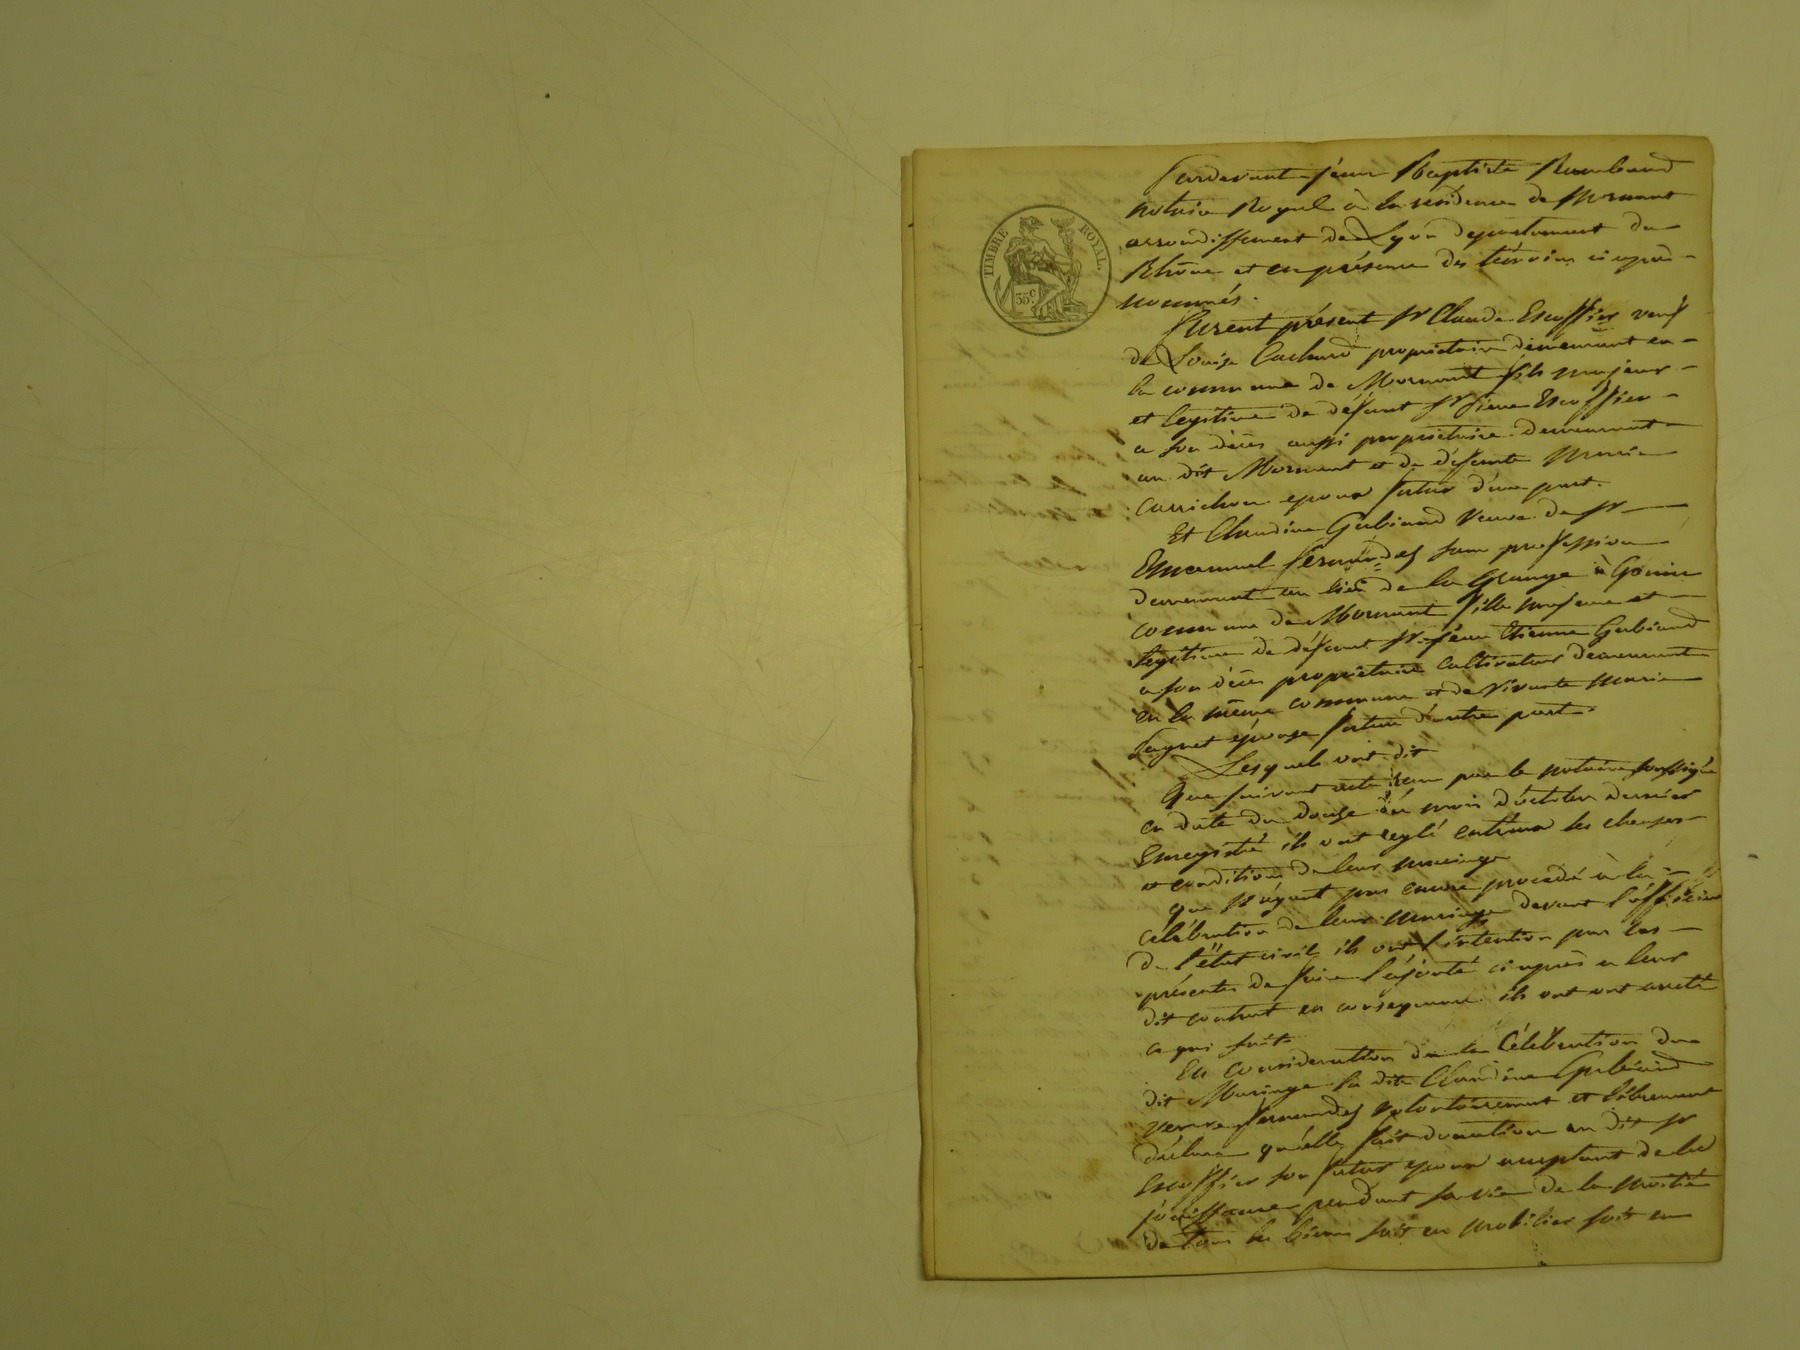 TIMBRE ROYAL.
35c
Pardevant jean Baptiste Rambaud
notaire Royal à la residence de Mornant
arrondissement de Lyon departement du
Rhône et en présence des témoins ci apres
nommés.
Furent présent Sr Claude Escoffier veuf
de Louise propriétaire demeurant en
la commune de Mornant fils majeur
et legitime de défunt Sr Escoffier
a son décès aussi propriétaire demeurant
au dit Mornant et de défunte Marie
epoux futur d'une part.
Et Claudine Gubiand Veuve de Sr
Emanuel Fernandes sans profession
demeurant au lieu de la Grange à Gonin
commune de Mornant fille majeure et
legitime de défunt Sr jean Etienne Gubiand
a son décès propriétaire cultivateur demeurant
en la même commune et de vivante Marie
épouse future d'autre part.
Lesquels ont dit
Que suivant acte reçu par le notaire soussigné
en date du douze du mois d'octobre dernier
Enregistré ils ont reglé entreux les charges
et conditions de leur mariage
que n'ayant pas encore procedé à la
célébration de leur mariage devant l'officier
de l'état civil ils ont l'intention par les
présentes de faire ci après a leur
dit contrat en consequence ils ont arreté
ce qui suit
En consideration de la Célébration du
dit Mariage la dite Claudine Gubiand
veuve Fernandes volontairement et librement
déclare qu'elle fait donation au dit Sr
Escoffier son futur epoux acceptant de la
jouissance pendant sa vie de la moitié
de tous les biens soit en mobilier soit en